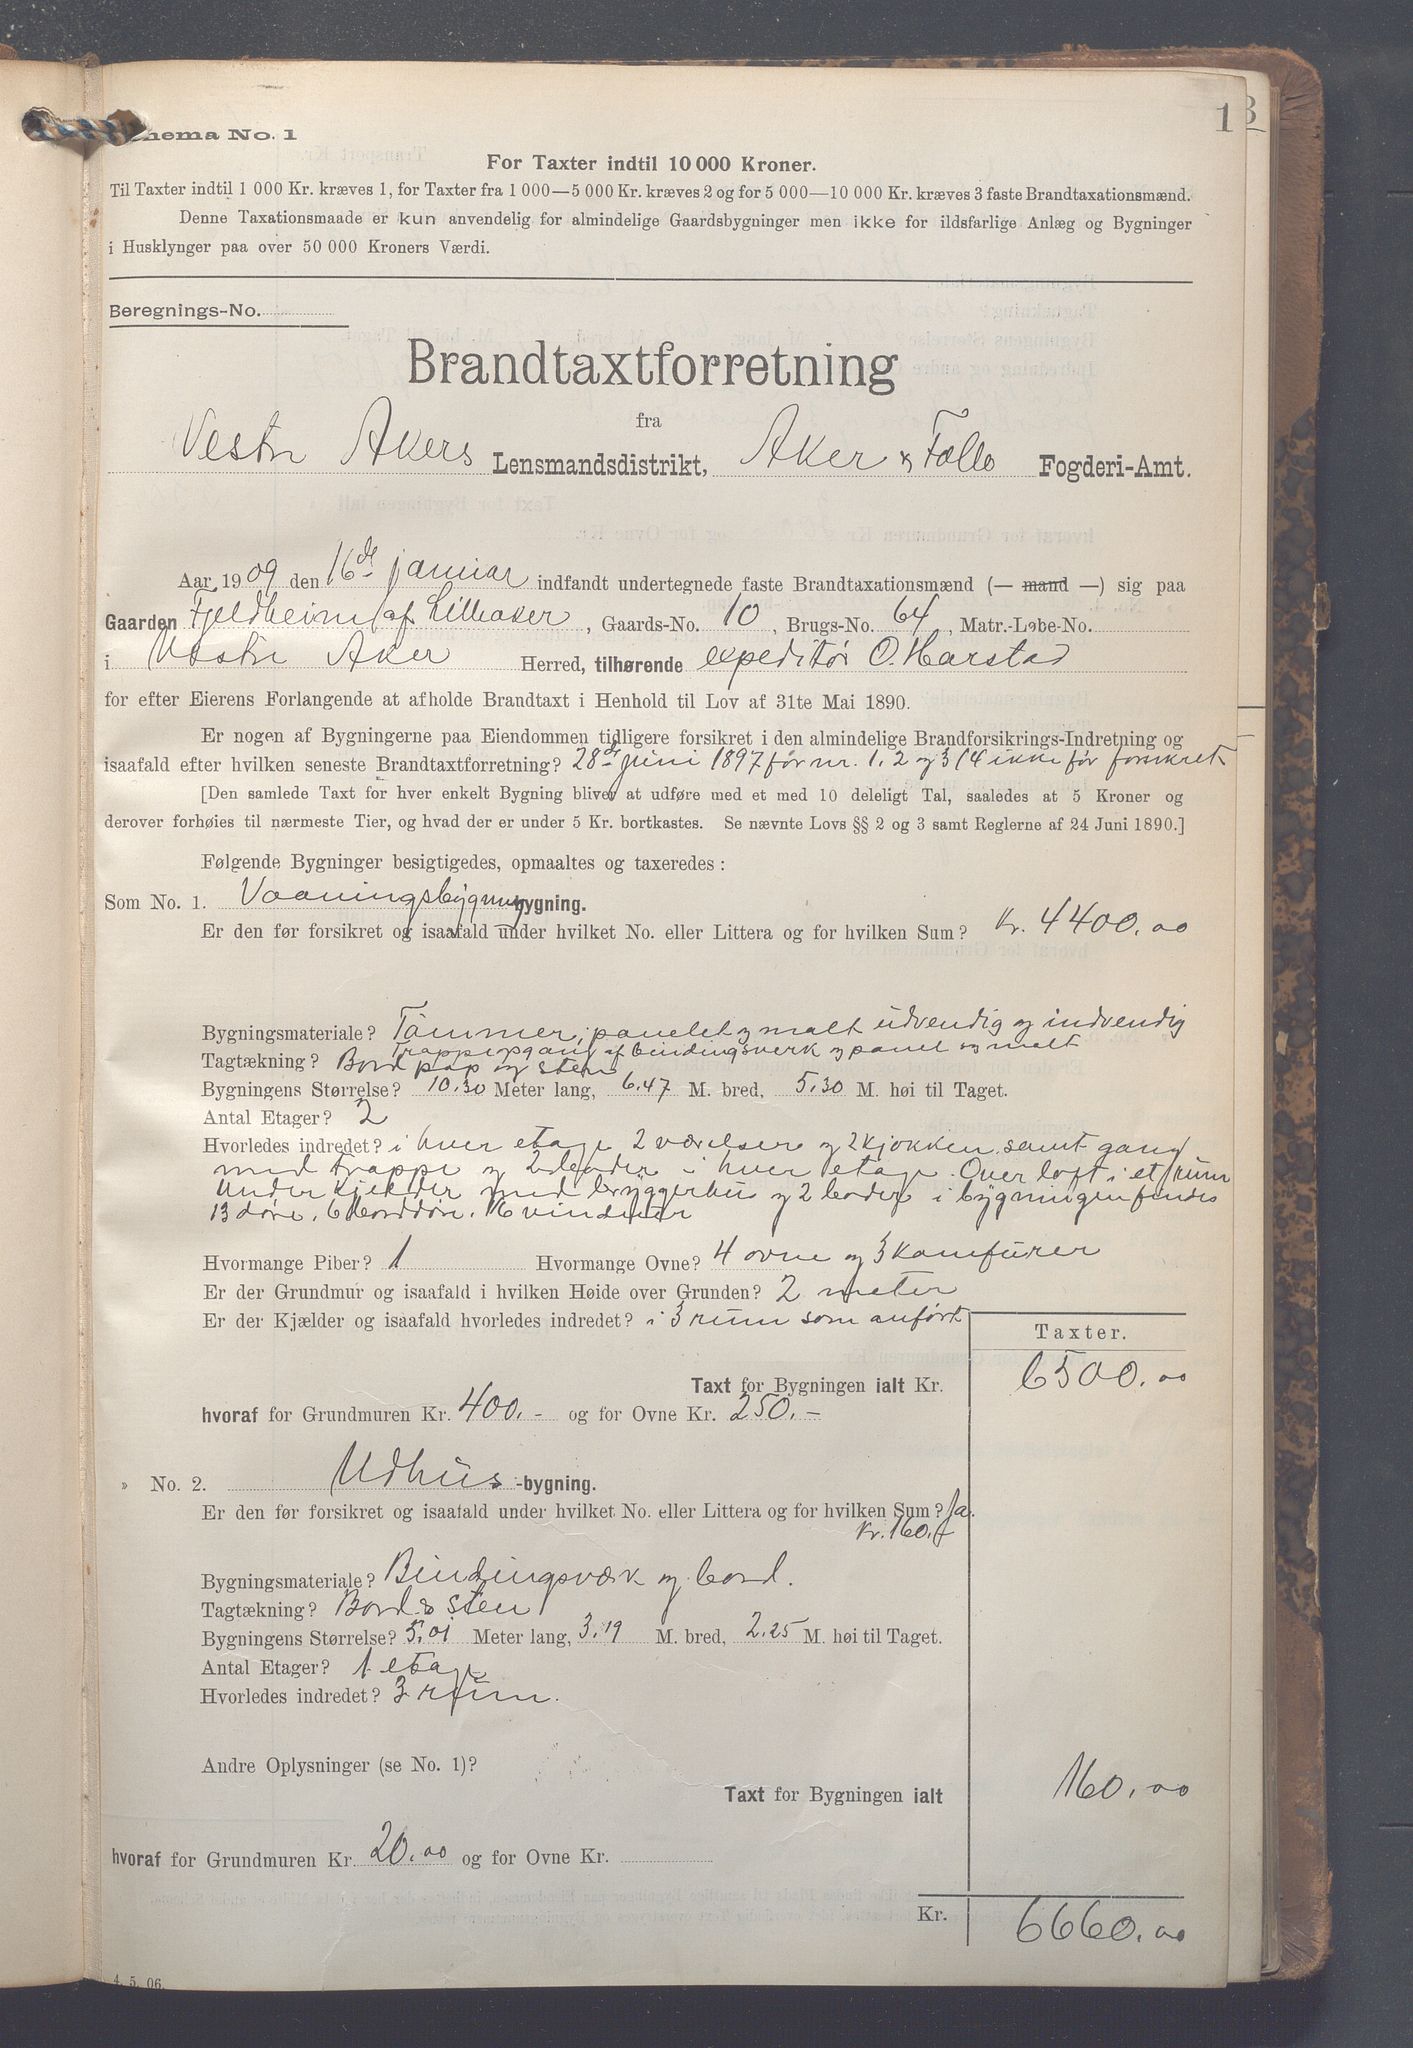 1
3
hema No. 1
For Taxter indtil 10 000 Kroner.
Til Taxter indtil 1 000 Kr. kræves 1, for Taxter fra 1 000—5 000 Kr. kræves 2 og for 5 000—10 000 Kr. kræves 3 faste Brandtaxationsmænd.
Denne Taxationsmaade er kun anvendelig for almindelige Gaardsbygninger men ikke for ildsfarlige Anlæg og Bygninger
i Husklynger paa over 50 000 Kroners Værdi.
Beregnings-No.
Brandtaxtforretning
fra
Vestre Akers Lensmandsdistrikt, Aker & Follo Fogderi-Amt.
Aar 1909 den 16de januar indfandt undertegnede faste Brandtaxationsmænd (— mand —) sig paa
Gaarden Fjeldheim af Lilleaker, Gaards-No. 10, Brugs-No. 64, Matr.-Løbe-No.
i Vestre Aker Herred, tilhørende expeditør O. Harstad
for efter Eierens Forlangende at afholde Brandtaxt i Henhold til Lov af 31te Mai 1890.
Er nogen af Bygningerne paa Eiendommen tidligere forsikret i den almindelige Brandforsikrings-Indretning og
isaafald efter hvilken seneste Brandtaxtforretning? 28de juni 1897 for nr. 1, 2 og 3 (4 ikke før forsikret
[Den samlede Taxt for hver enkelt Bygning bliver at udføre med et med 10 deleligt Tal, saaledes at 5 Kroner og
derover forhøies til nærmeste Tier, og hvad der er under 5 Kr. bortkastes. Se nævnte Lovs §§ 2 og 3 samt Reglerne af 24 Juni 1890.]
Følgende Bygninger besigtigedes, opmaaltes og taxeredes:
Som No. 1. Vaaningsbygning bygning.
Er den før forsikret og isaafald under hvilket No. eller Littera og for hvilken Sum? Kr. 4400.00
Bygningsmateriale? Tømmer, panelet og malt udvendig og indvendig
Trappeopgang af bindingsverk og panel og malt
Tagtækning? Bord pap og sten
Bygningens Størrelse? 10.30 Meter lang, 6.47 M. bred, 5.30 M. høi til Taget.
Antal Etager? 2
Hvorledes indredet? i hver etage 2 værelser og 2 kjøkken samt gang
med trappe og 2 boder i hver etage. Over loft i et rum
Under kjelder med bryggerhus og 2 boder i bygningen findes
13 døre, 6 borddøre, 16 vinduer
Hvormange Piber? 1 Hvormange Ovne? 4 ovne og 3 komfurer
Er der Grundmur og isaafald i hvilken Høide over Grunden? 2 meter
Er der Kjælder og isaafald hvorledes indredet? i 3 rum som anført
Taxter.
Taxt for Bygningen ialt Kr. 6500.00
hvoraf for Grundmuren Kr. 400.- og for Ovne Kr. 250.-
» No. 2. Udhus -bygning.
Er den før forsikret og isaafald under hvilket No. eller Littera og for hvilken Sum? Ja.
Kr. 160.-
Bygningsmateriale? Bindingsværk og bord.
Tagtækning? Bord & sten
Bygningens Størrelse? 5.01 Meter lang, 3.19 M. bred, 2.25 M. høi til Taget.
Antal Etager? 1 etage
Hvorledes indredet? 3 rum.
Andre Oplysninger (se No. 1)?
Taxt for Bygningen ialt 160.00
hvoraf for Grundmuren Kr. 20.00 og for Ovne Kr.
Kr. 6660.00
4. 5. 06.